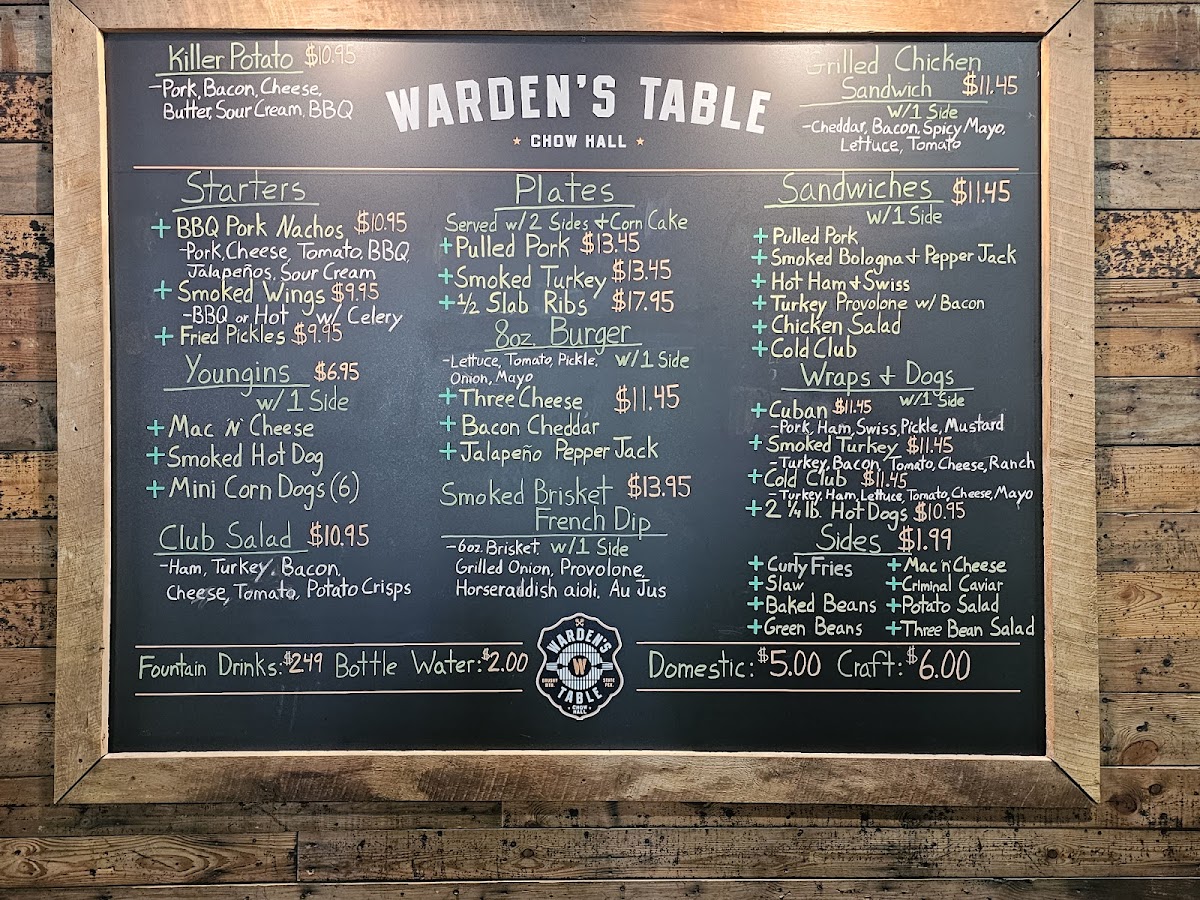 Killer Potato $10.95
-Pork, Bacon, Cheese,
Butter, Sour Cream, BBQ
WARDEN'S TABLE
CHOW HALL
Grilled Chicken
Sandwich $11.45
w/1 Side
-Cheddar, Bacon, Spicy Mayo,
Lettuce, Tomato
Starters
+ BBQ Pork Nachos $10.95
-Pork, Cheese, Tomato, BBQ,
Jalapeños, Sour Cream
+ Smoked Wings $9.95
-BBQ or Hot w/ Celery
+ Fried Pickles $9.95
Youngins $6.95
w/1 Side
+ Mac N' Cheese
+ Smoked Hot Dog
+ Mini Corn Dogs (6)
Club Salad $10.95
-Ham, Turkey, Bacon,
Cheese, Tomato, Potato Crisps
Plates
Served w/2 Sides + Corn Cake
+ Pulled Pork $13.45
+ Smoked Turkey $13.45
+ ½ Slab Ribs $17.95
8oz. Burger
-Lettuce, Tomato, Pickle, w/1 Side
Onion, Mayo
+ Three Cheese $11.45
+ Bacon Cheddar
+ Jalapeño Pepper Jack
Smoked Brisket $13.95
French Dip
-6oz. Brisket, w/1 Side
Grilled Onion, Provolone,
Horseraddish aioli, Au Jus
Sandwiches $11.45
w/1 Side
+ Pulled Pork
+ Smoked Bologna + Pepper Jack
+ Hot Ham + Swiss
+ Turkey Provolone w/ Bacon
+ Chicken Salad
+ Cold Club
Wraps + Dogs
w/1 Side
+ Cuban $11.45
-Pork, Ham, Swiss, Pickle, Mustard
+ Smoked Turkey $11.45
-Turkey, Bacon, Tomato, Cheese, Ranch
+ Cold Club $11.45
-Turkey, Ham, Lettuce, Tomato, Cheese, Mayo
+ 2 ¼ lb. Hot Dogs $10.95
Sides $1.99
+ Curly Fries + Mac n' Cheese
+ Slaw + Criminal Caviar
+ Baked Beans + Potato Salad
+ Green Beans + Three Bean Salad
Fountain Drinks: $2.49 Bottle Water: $2.00
WARDEN'S
W
BRUSHY MTN. STATE PEN.
TABLE
CHOW HALL
Domestic: $5.00 Craft: $6.00